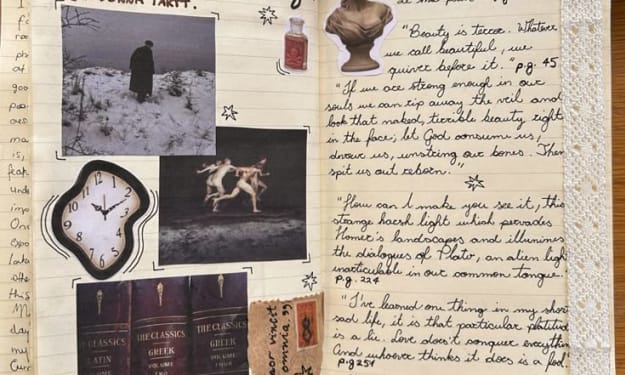 DONNA TARTT.
THE CLASSICS
LATIN
THE CLASSICS
GREEK
VOLUME
TWO
THE CLASSICS
GREEK
VOLUME
FOUR
vincit
omnia
"Beauty is terror. Whatever
we call beautiful, we
quiver before it." pg. 45
"If we are strong enough in our
souls we can rip away the veil and
look that naked, terrible beauty right
in the face; let God consume us,
devour us, unstring our bones. Then
spit us out reborn."
"How can I make you see it, this
strange harsh light which pervades
Homer's landscapes and illumines
the dialogues of Plato, an alien light
inarticulable in our common tongue.
p.g. 224
"I've learned one thing in my short
sad life, it is that particular platitude
is a lie. Love does't conquer everything
And whoever thinks it does is a fool"
p.g 251